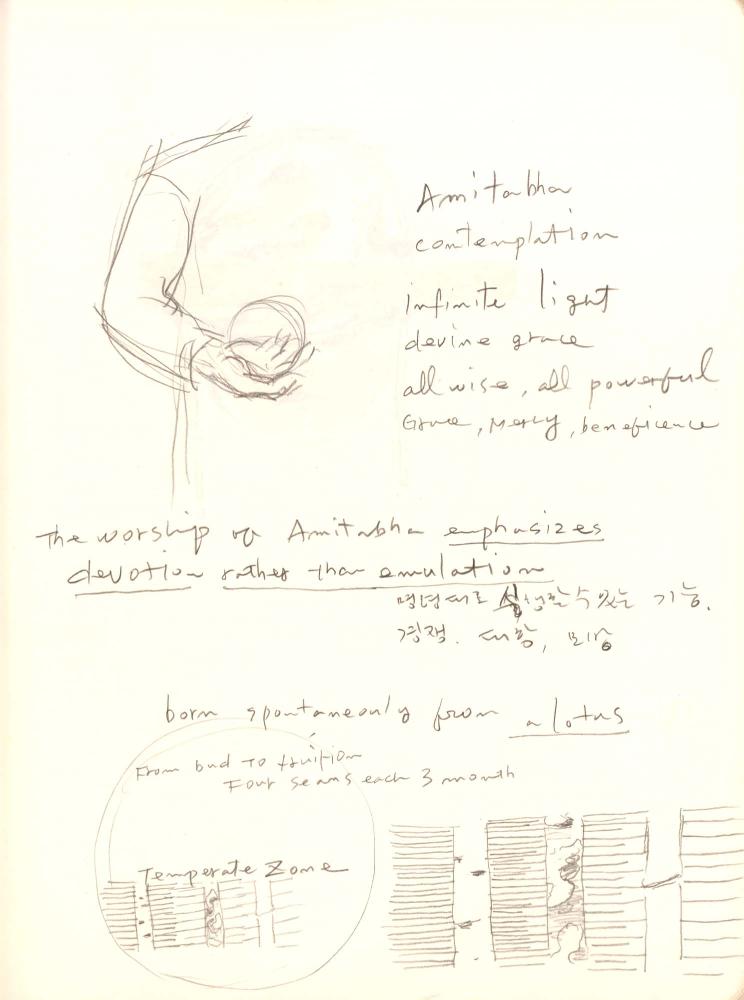 Amitabha
contemplation
infinite light
devine grace
all wise, all powerful
Grace, Mercy, beneficence
The worship of Amitabha emphasizes
devotion rather than emulation
수 있는 기능.
경쟁. 대항, 모방
born spontaneously from a lotus
From bud to fruition
Four seams each 3 month
Temperate Zone